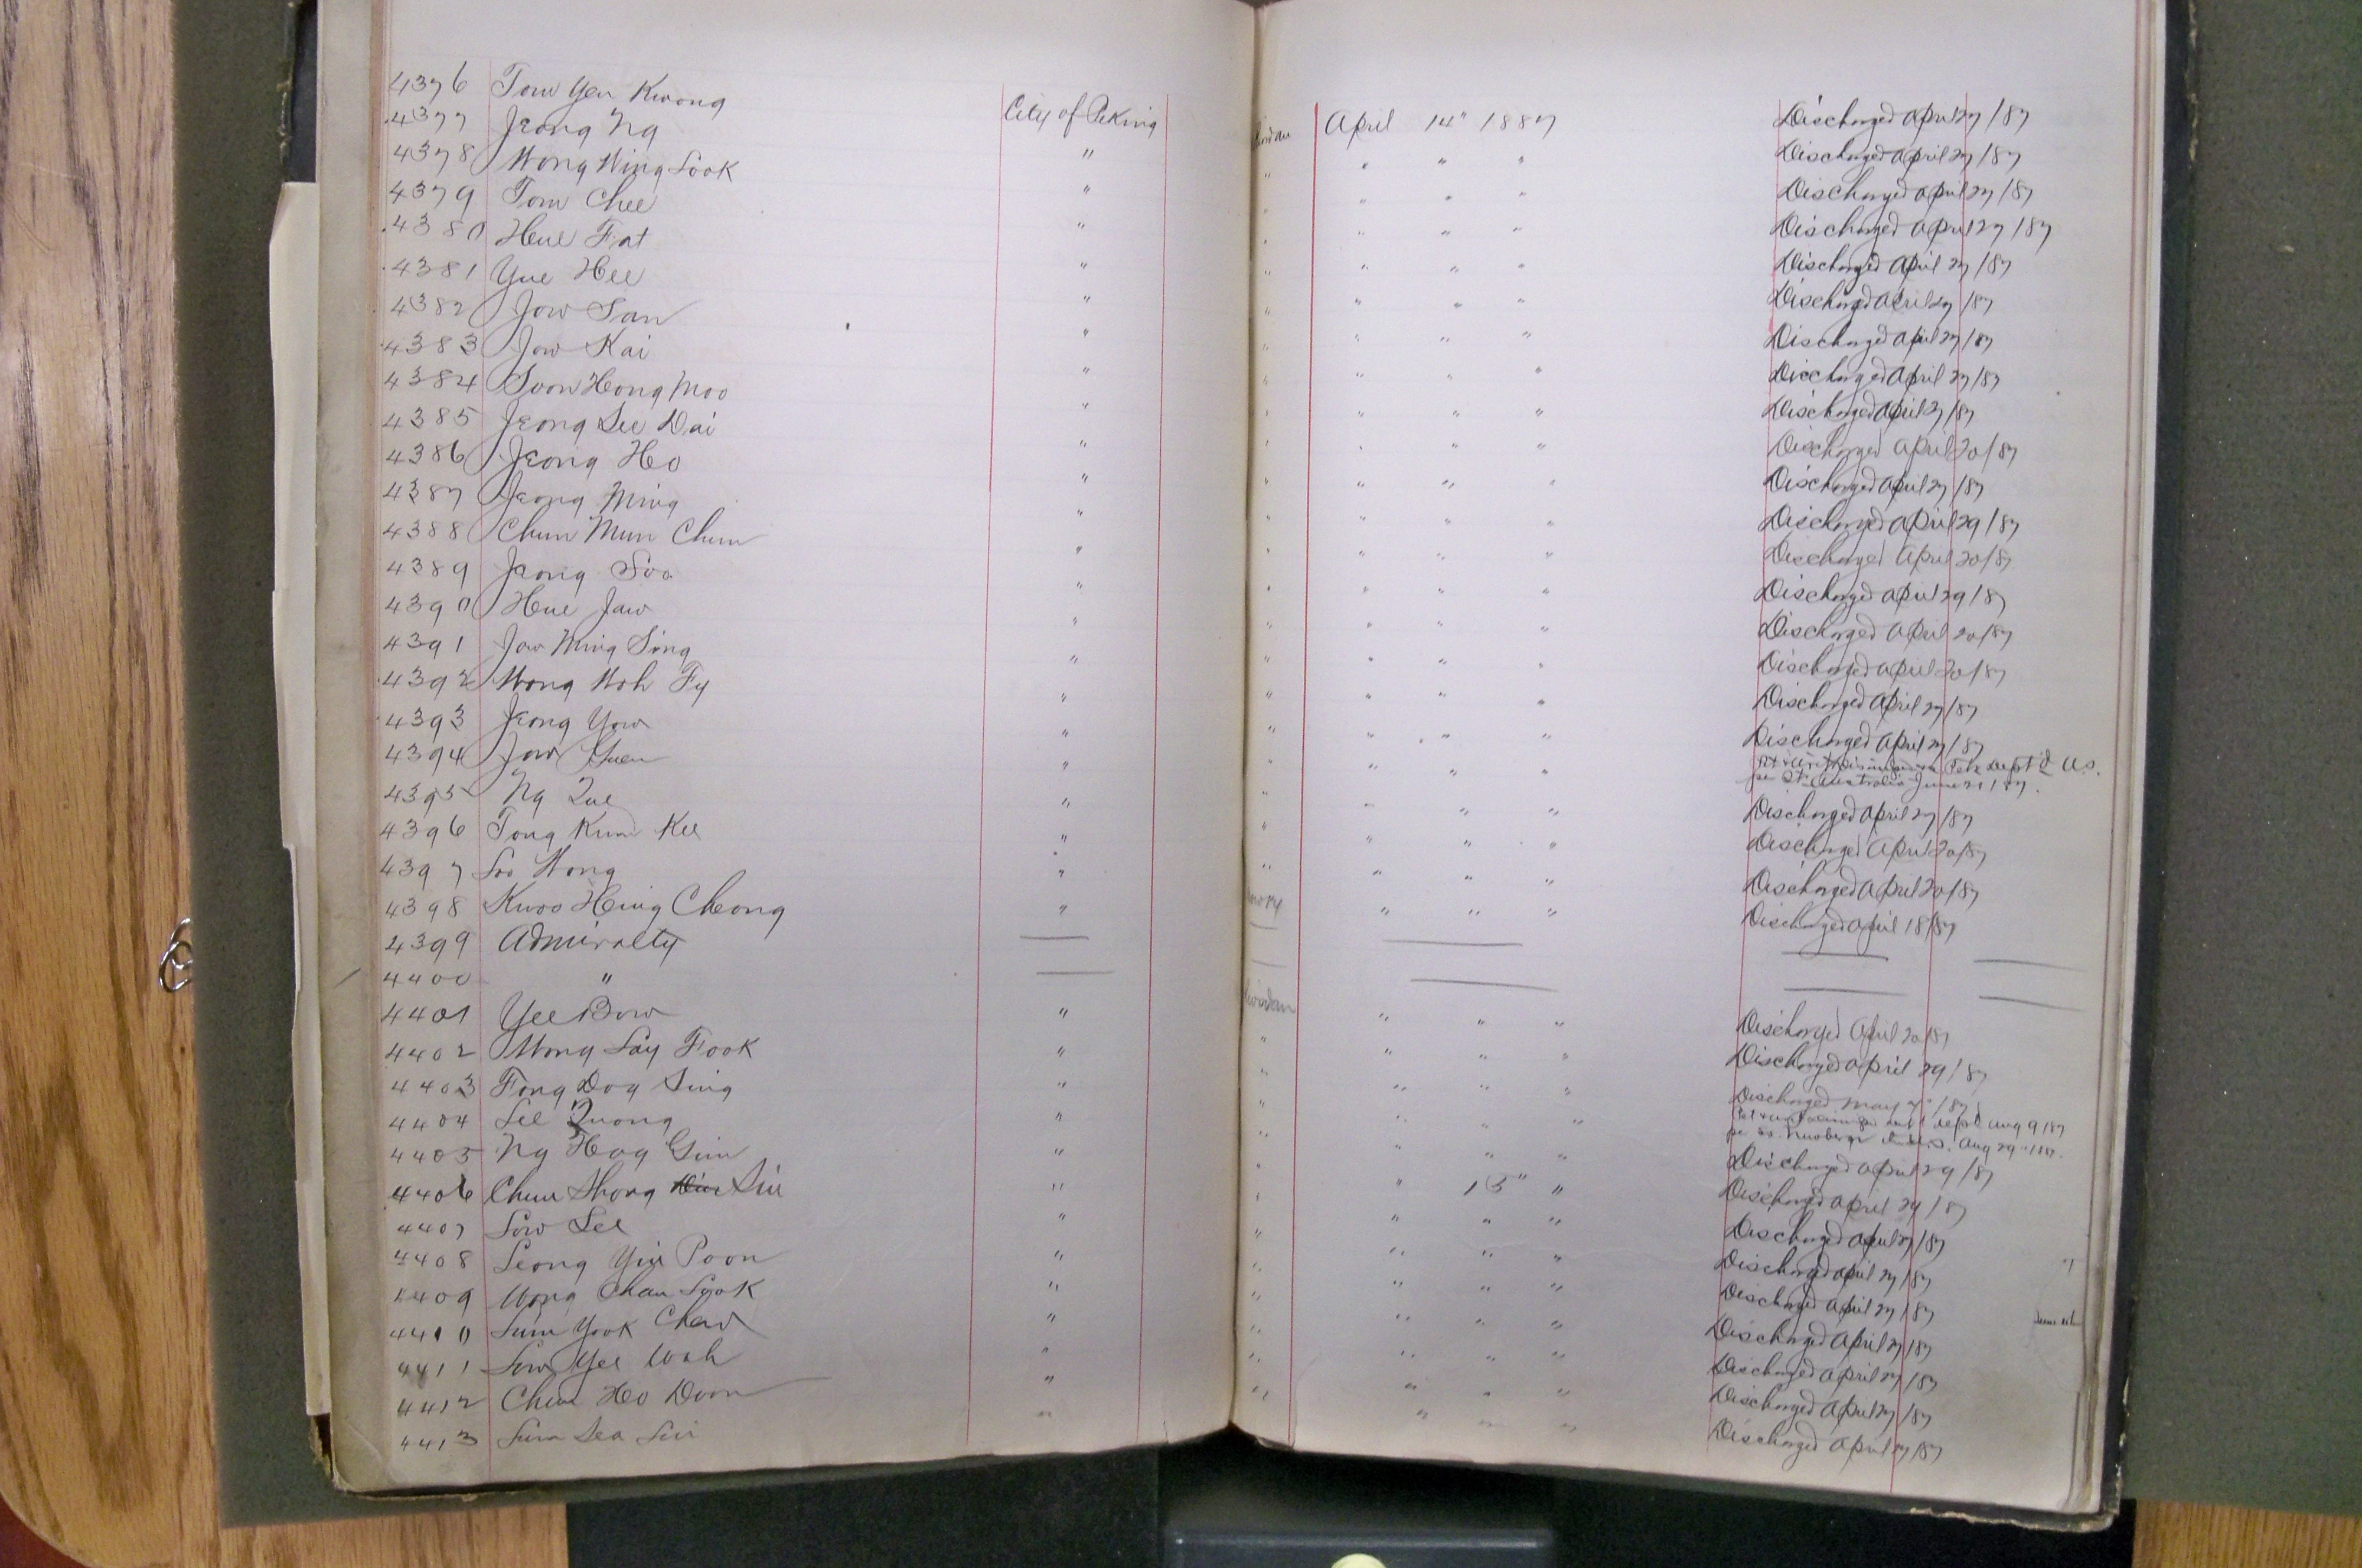 4376 Tom Yen Kwong City of Peking Riordan April 14" 1887 Discharged April 27/87
4377 Jeong Ng " " " " " Discharged April 27/87
4378 Wong Wing Sook " " " " " Discharged April 27/87
4379 Tom Chee " " " " " Discharged April 27/87
4380 Heue Fat " " " " " Discharged April 27/87
4381 Yue Hee " " " " " Discharged April 27/87
4382 Jow San " " " " " Discharged April 27/87
4383 Jow Kai " " " " " Discharged April 27/87
4384 Soon Hong Moo " " " " " Discharged April 27/87
4385 Jeong See Dai " " " " " Discharged April 20/87
4386 Jeong Ho " " " " " Discharged April 27/87
4387 Jeong Ming " " " " " Discharged April 29/87
4388 Chun Mun Chun " " " " " Discharged April 20/87
4389 Jeong Soo " " " " " Discharged April 29/87
4390 Hue Jaw " " " " " Discharged April 20/87
4391 Jow Ming Sing " " " " " Discharged April 20/87
4392 Wong Woh Fy " " " " " Discharged April 27/87
4393 Jeong Yow " " " " " Discharged April 27/87
4394 Jow Yuen " " " " " Dept'd U.S.
per St. Australia June 21/87.
4395 Ng Que " " " " " Discharged April 27/87
4396 Tong Kum Kee " " " " " Discharged April 20/87
4397 Soo Wong " " " " " Discharged April 20/87
4398 Kwoo Hing Cheong " " " " Discharged April 18/87
4399 Admiralty
4400 "
4401 Yee Bow " Riordan " " " Discharged April 20/87
4402 Wong Say Fook " " " " " Discharged April 29/87
4403 Fong Dog Sing " " " " " Discharged May /87
4404 Lee Quong " " " " " Aug 9/87
per U.S. Aug 29"/87.
4405 Ng Hog Gim " " " " " Discharged April 29/87
4406 Chun Shong Sui " " " 15" " Discharged April 29/87
4407 Sow Lee " " " " " Discharged April 27/87
4408 Leong Yiu Poon " " " " " Discharged April 27/87
4409 Wong Chau Sook " " " " " Discharged April 27/87
4410 Sum Yook Chew " " " " " Discharged April 27/87
4411 Sow Yee Wah " " " " " Discharged April 27/87
4412 Chun Ho Doon " " " " " Discharged April 27/87
4413 Sum Sea Sui " " " " " Discharged April 27/87